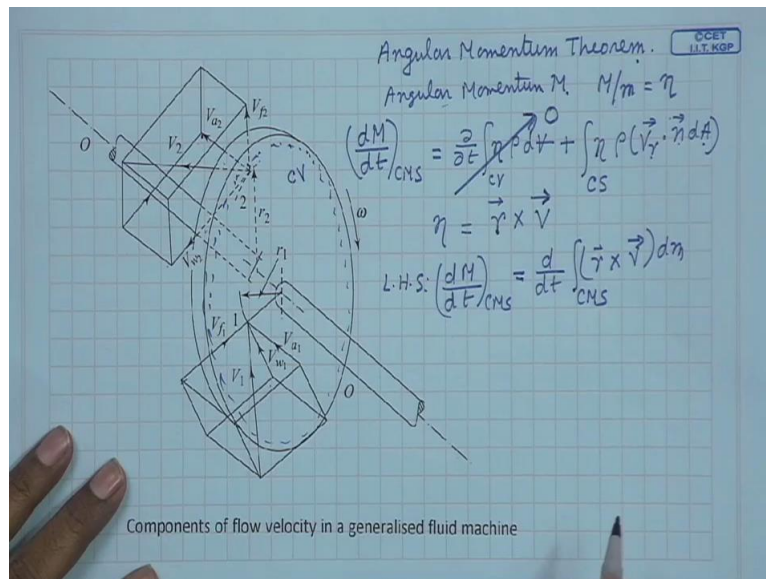 Angular Momentum Theorem.
©CET
I.I.T. KGP
Angular Momentum M. M/m = η
(dM/dt)CMS = ∂/∂t ∫CV η ρ dV + ∫CS η ρ (V⃗r · n⃗ dA)
0
η = r⃗ × V⃗
L.H.S: (dM/dt)CMS = d/dt ∫CMS (r⃗ × V⃗) dm
O
Va2
Vf2
V2
CV
2
r2
ω
Vw2
r1
Vf1
1
Va1
Vw1
V1
O
Components of flow velocity in a generalised fluid machine